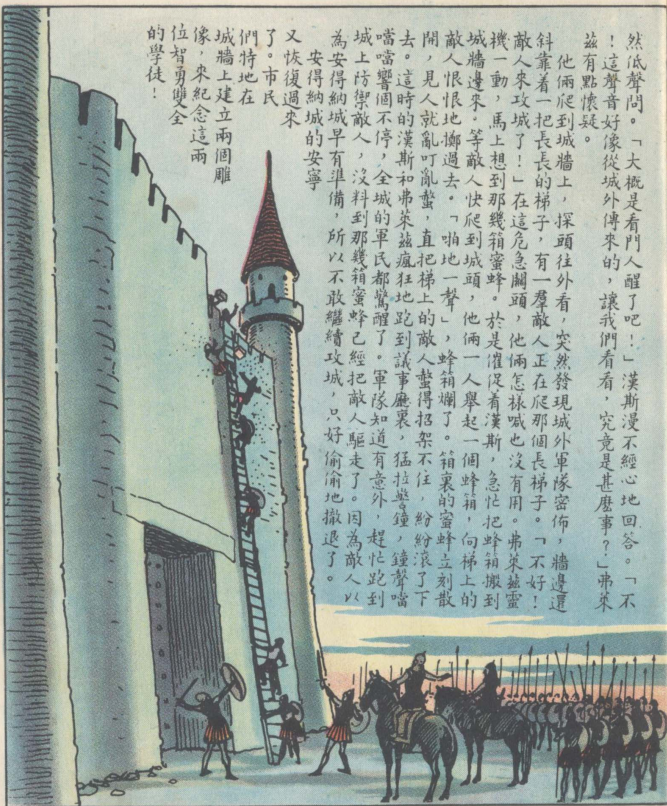 然低聲問。「大概是看門人醒了吧!」漢斯漫不經心地回答。「不
!這聲音好像從城外傳來的,讓我們看看,究竟是甚麼事?」弗萊
茲有點懷疑。
他倆爬到城牆上,探頭往外看,突然發現城外軍隊密佈,牆邊還
斜靠着一把長長的梯子,有一羣敵人正在爬那個長梯子。「不好!
敵人來攻城了!」在這危急關頭,他倆怎樣喊也沒有用。弗萊茲靈
機一動,馬上想到那幾箱蜜蜂。於是催促着漢斯,急忙把蜂箱搬到
城牆邊來。等敵人快爬到城頭,他倆一人舉起一個蜂箱,向梯上的
敵人恨恨地擲過去。「啪地一聲」,蜂箱爛了。箱裏的蜜蜂立刻散
開,見人就亂叮亂螫,直把梯上的敵人螫得招架不住,紛紛滾了下
去。這時的漢斯和弗萊茲瘋狂地跑到議事廳裏,猛拉警鐘,鐘聲噹
噹噹響個不停,全城的軍民都驚醒了。軍隊知道有意外,趕忙跑到
城上防禦敵人,沒料到那幾箱蜜蜂已經把敵人驅走了。因為敵人以
為安得納城早有準備,所以不敢繼續攻城,只好偷偷地撤退了。
安得納城的安寧
又恢復過來
了。市民
們特地在
城牆上建立兩個雕
像,來紀念這兩
位智勇雙全
的學徒!